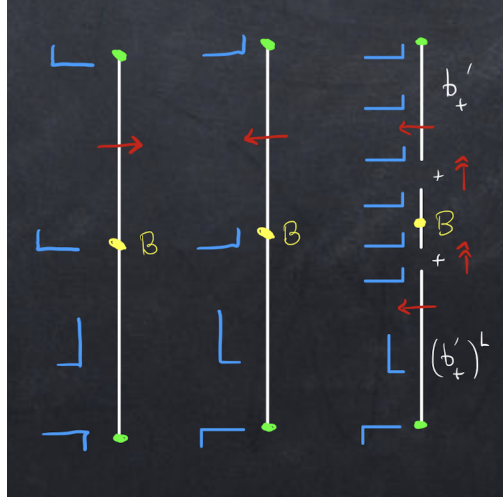 b'₊
+
B B B
+
(b'₊)ᴸ